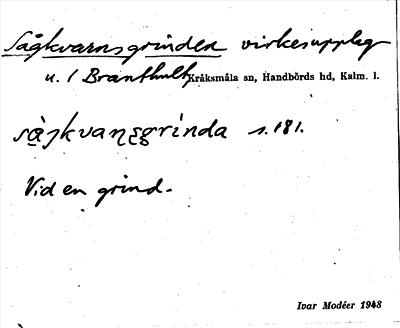 Sågkvarnsgrinden virkesupplag
u. 1 Branthult, Kråksmåla sn, Handbörds hd, Kalm. l.
s. 181.
Vid en grind.
Ivar Modéer 1948